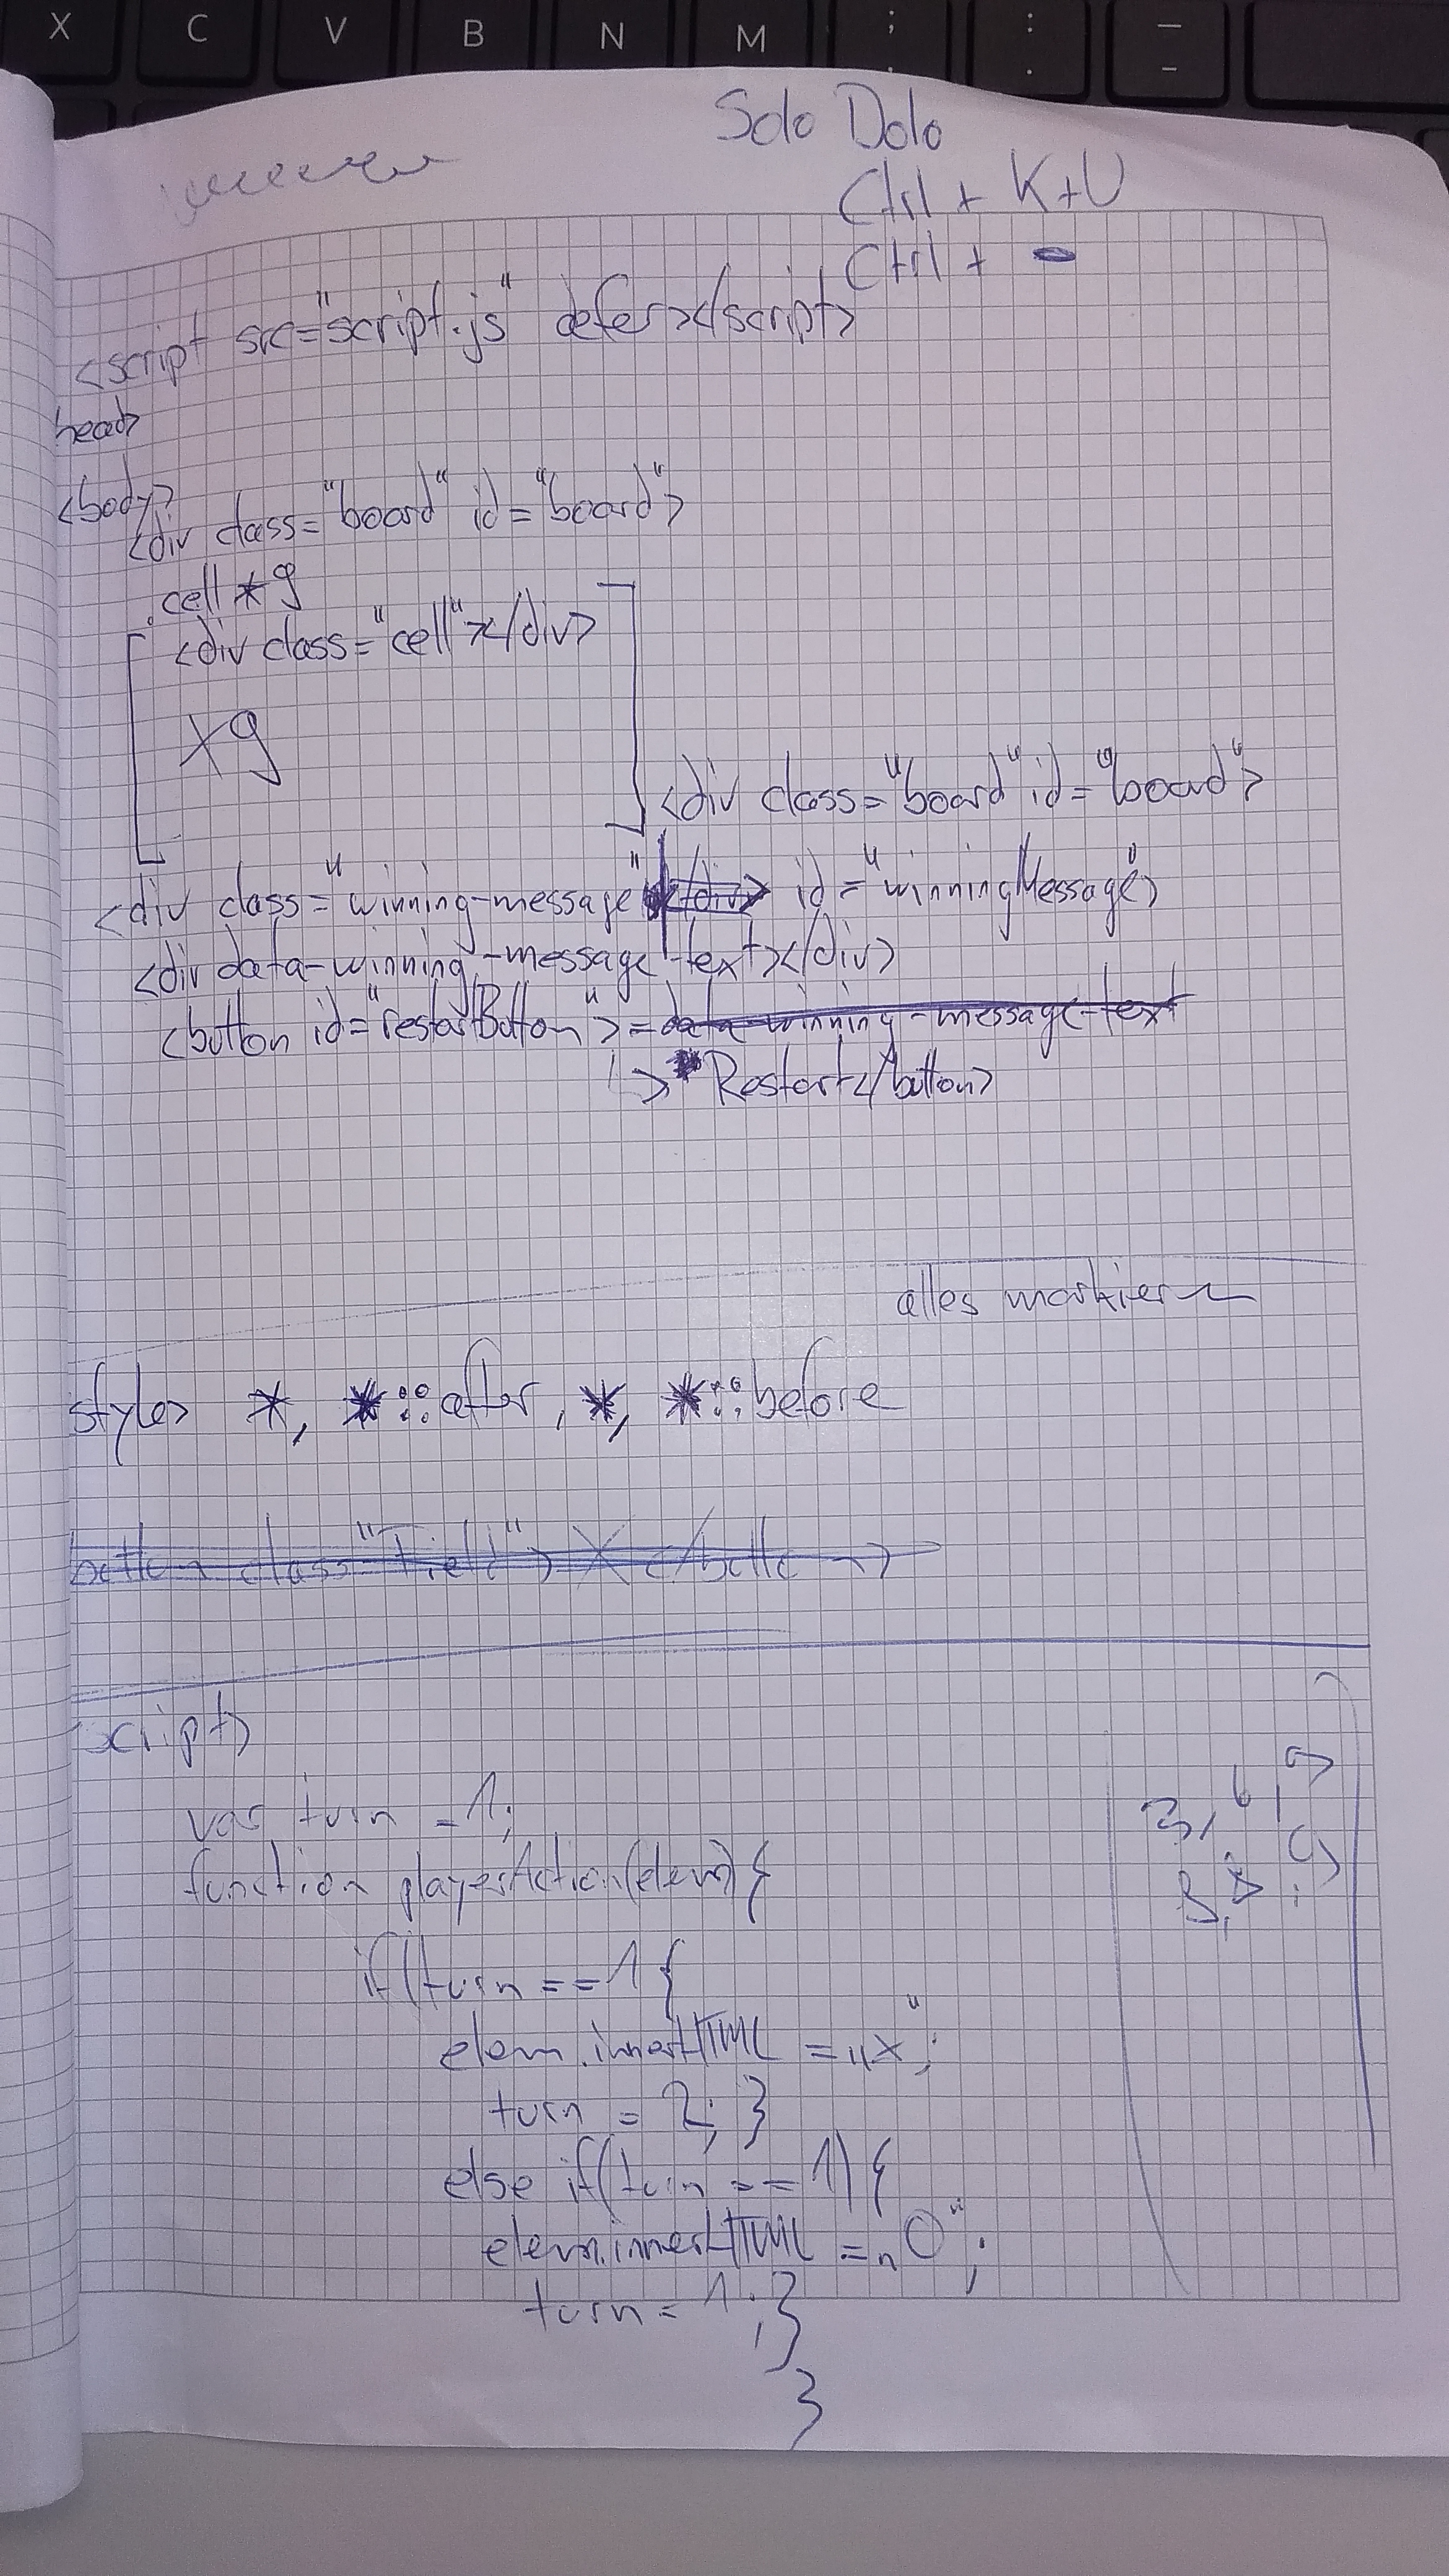 X C V B N M ; : _
, . -
Solo Dolo
Ctrl + K+U
Ctrl + -
<script src="script.js" defer></script>
head>
<body>
<div class="board" id="board">
.cell * 9
<div class="cell"></div>
x9
<div class="board" id="board">
<div class="winning-message" </div> id="winningMessage">
<div data-winning-message-text></div>
<button id="restartButton">=data-winning-message-text
↳ Restart</button>
alles markieren
style> *, *::after, *, *::before
button class "Field"> X </button>
script>
var turn = 1;
function playerAction(elem) {
if(turn == 1 {
elem.innerHTML = „x";
turn = 2; }
else if(turn == 1) {
elem.innerHTML = „O";
turn = 1; }
}